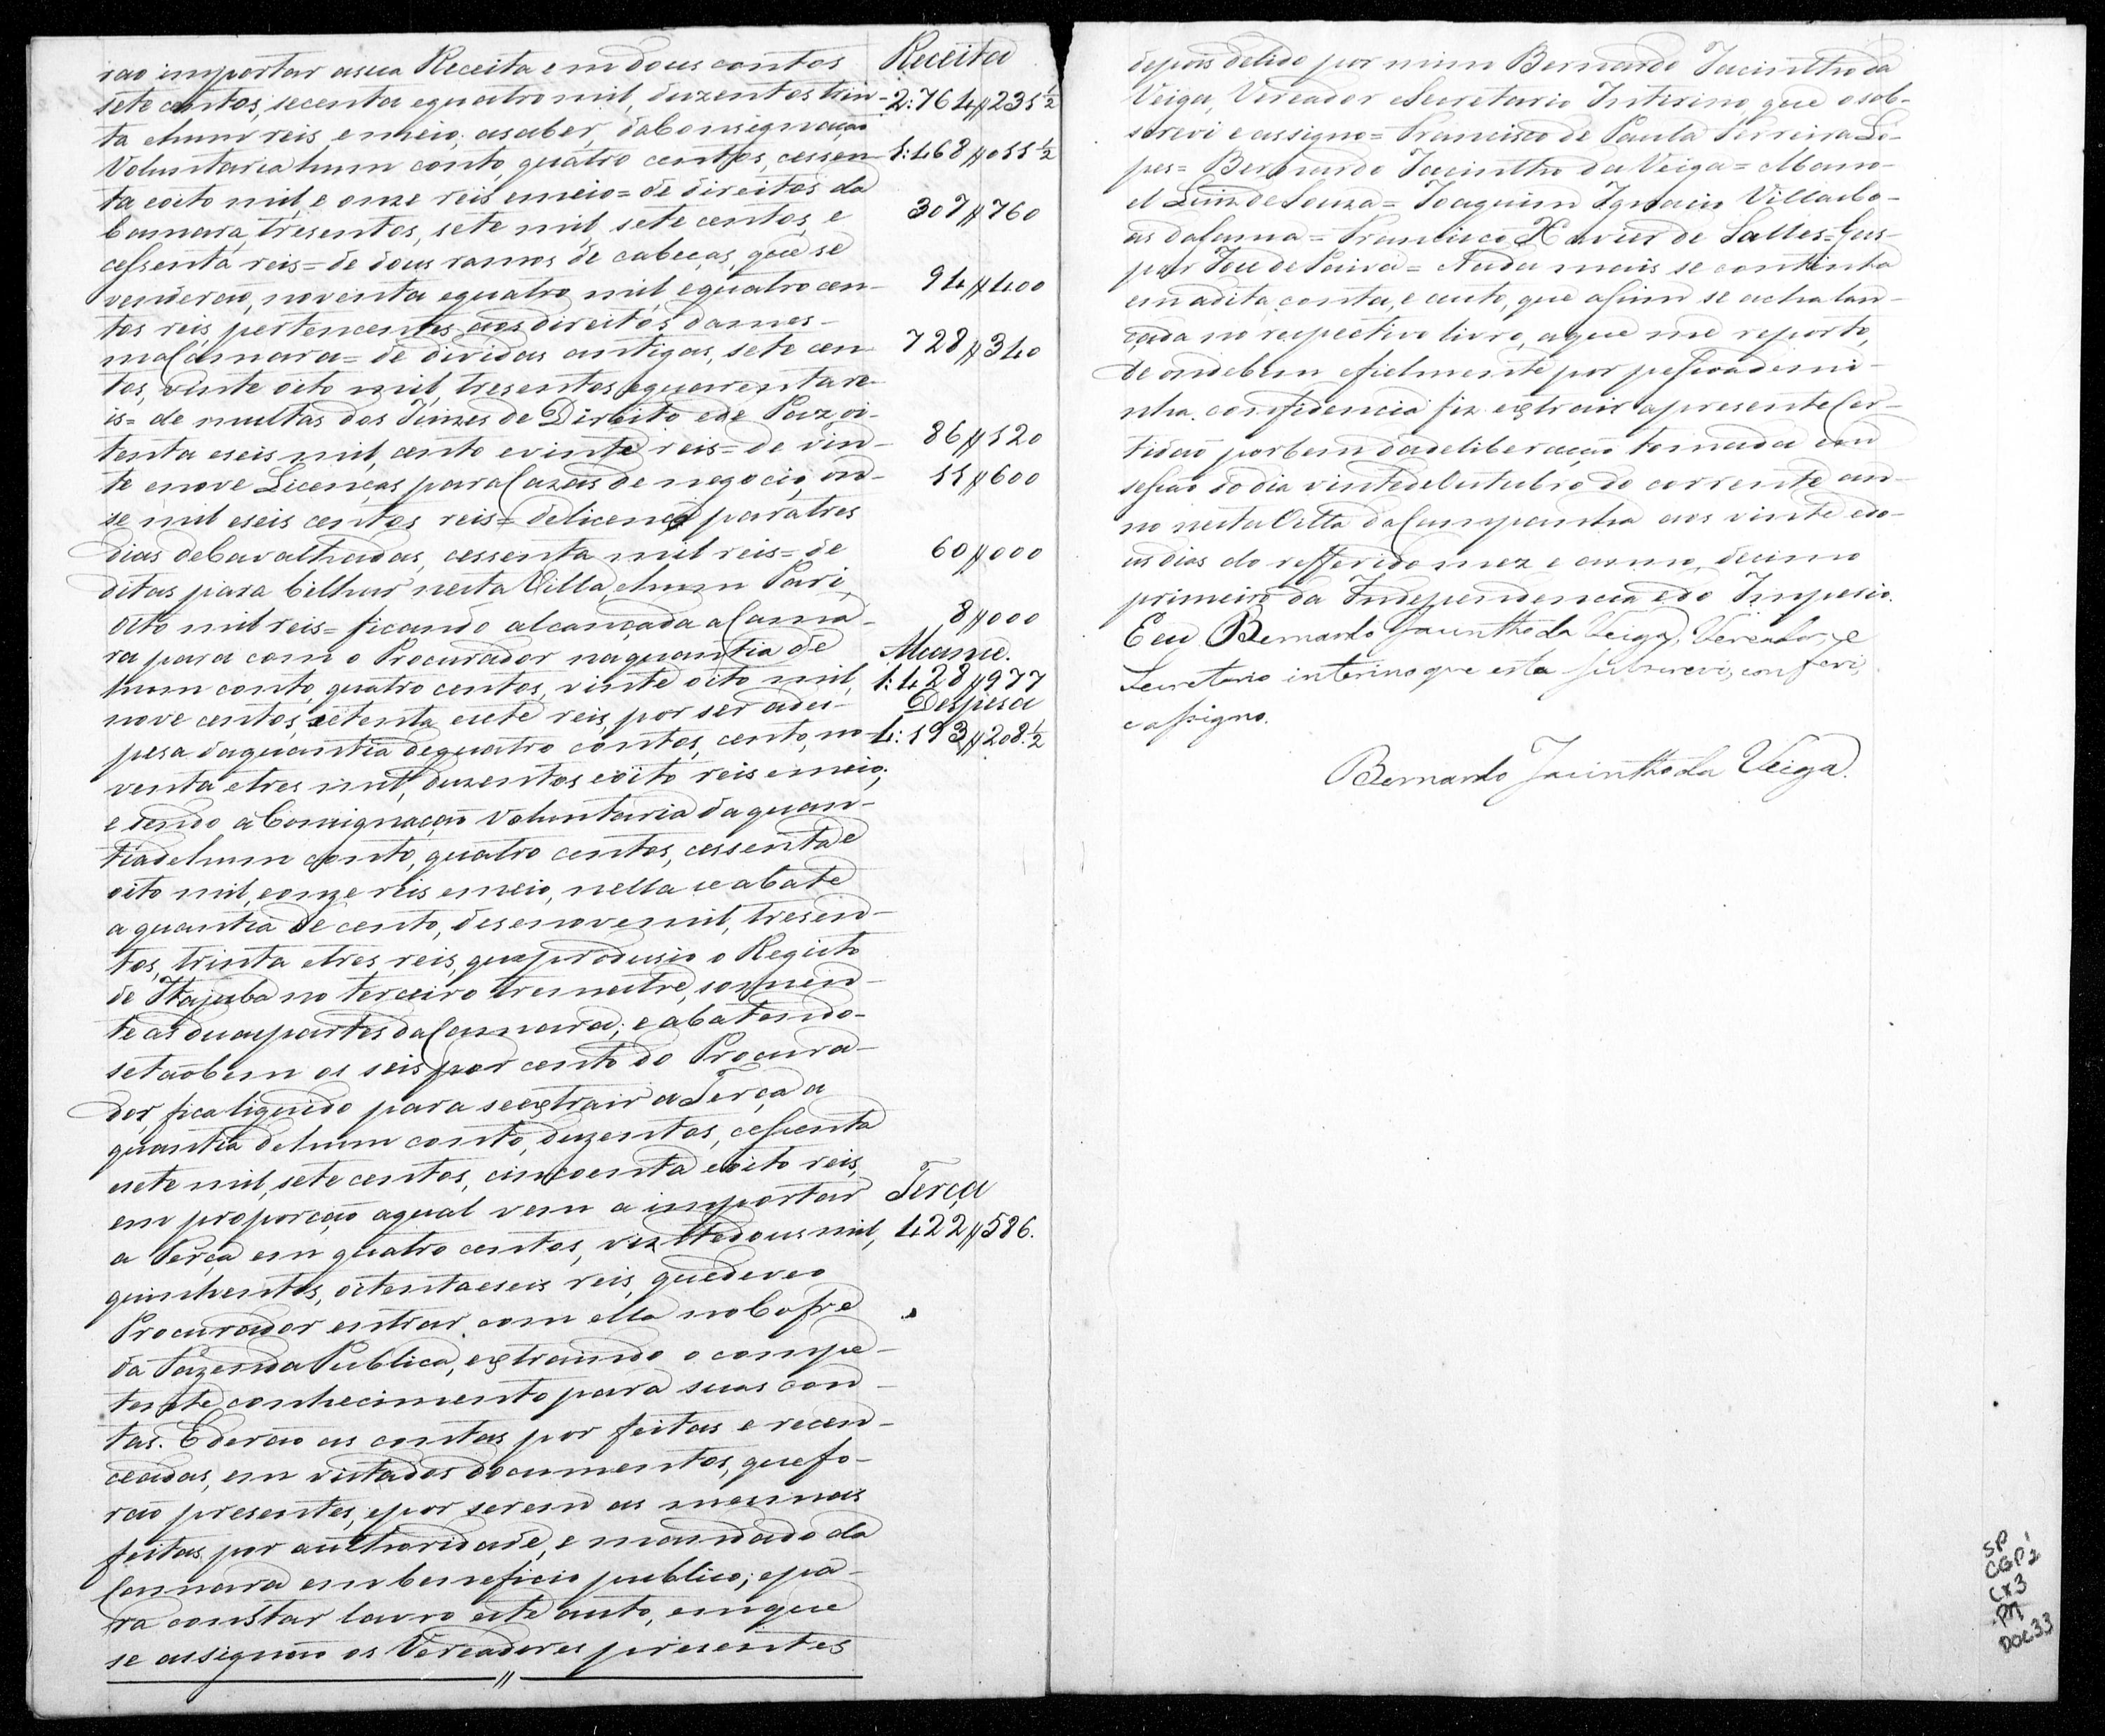 rão importar asua Receita em dous contos
Receita
sete centos, secenta equatro mil, duzentos trin-
2:764//231½
ta ehum reis emeio, asaber, daConsignação
Voluntaria hum conto, quatro centos, cessen-
1:468//011½
ta eoito mil, e onze reis emeio= de direitos da
Camara, tresentos, sete mil, sete centos, e
307//760
cessenta reis= de dous ramos de cabeças, que se
venderão, noventa equatro mil, equatro cen-
94//400
tos reis, pertencentes aos direitos dames-
maCamara= de dividas antigas, sete cen-
728//340
tos, vinte oito mil, tresentos, equarenta re-
is= de multas dos Juizes de Direito ede Paz oi-
tenta eseis mil, cento evinte reis= de vin-
86//120
te enove Licenças paraCazas de negocio, on-
11//600
se mil eseis centos reis= delicença para tres
dias deCavalhadas, cessenta mil reis= de
60//000
ditas para bilhar nesta Villa, ehum Pari,
oito mil reis= ficando alcançada aCama-
8//000
ra para com o Procurador naquantia de
Alcance.
hum conto, quatro centos, vinte oito mil,
1:428//977
nove centos, setenta esete reis, por ser ades-
Despesa
pesa daquantia dequatro contos, cento, no-
4:193//208.½
venta etres mil, duzentos eoito reis emeio;
e sendo aConsignação Voluntaria daquan-
tiadehum conto, quatro centos, cessenta e
oito mil, eonze reis emeio, nella seabate
a quantia de cento, desenovemil, tresen-
tos, trinta etres reis, queprodusio o Registo
de Itajuba no terceiro tremestre, somen-
te as duaspartes daCamara; e abatendo-
setaobem os seis por cento do Procura-
dor, fica liquido para seextrair a Terça a
quantia dehum conto, duzentos, cessenta
esete mil, sete centos, cincoenta eoito reis,
em proporção aqual vem a importar
Terça
a Terça em quatro centos, vinttedous mil,
422//586.
quinhentos, oitentaeseis reis, quedeveo
Procurador entrar com ella noCofre
da FazendaPublica, extraindo o compe-
tente conhecimento para suas con-
tas. Ederão as contas por feitas e recen-
ceadas, em vistados documentos, quefo-
rão presentes, epor serem as mesmas
feitas por authoridade, e mandado da
Camara em beneficio publico; epa-
ra constar lavro este auto, emque
se assignão os Vereadores presentes
depois delido por mim Bernardo Jacintho da
Veiga, Vereador eSecretario Interino, que osob-
screvi e assigno= Francisco de Paula Ferreira Lo-
pes= Bernardo Jacintho da Veiga= Mano-
el Luiz de Souza= Joaquim Ignacio Villasbo-
as daGama= Francisco Xavier de Salles= Gas-
par Jose de Paiva= Nada mais se continha
em adita conta, e auto, que assim se acha lan-
çada no respectivo livro, aque me reporto,
de ondebem efielmente por pessoademi-
nha confidencia fiz extrair apresenteCer-
tidão porbem dadeliberação tomada em
sessão do dia vintedeOutubro do corrente an-
no nestaVilla daCampanha aos vinte edo-
us dias do refferido mez e anno, decimo
primeiro da Independencia edo Imperio.
Eeu Bernardo Jacintho da Veiga, Vereador, e
Secretario interino que esta subscrevi, conferi,
eassigno.
Bernardo Jacintho da Veiga.
SP
CGP2
CX3
P1
DOC33